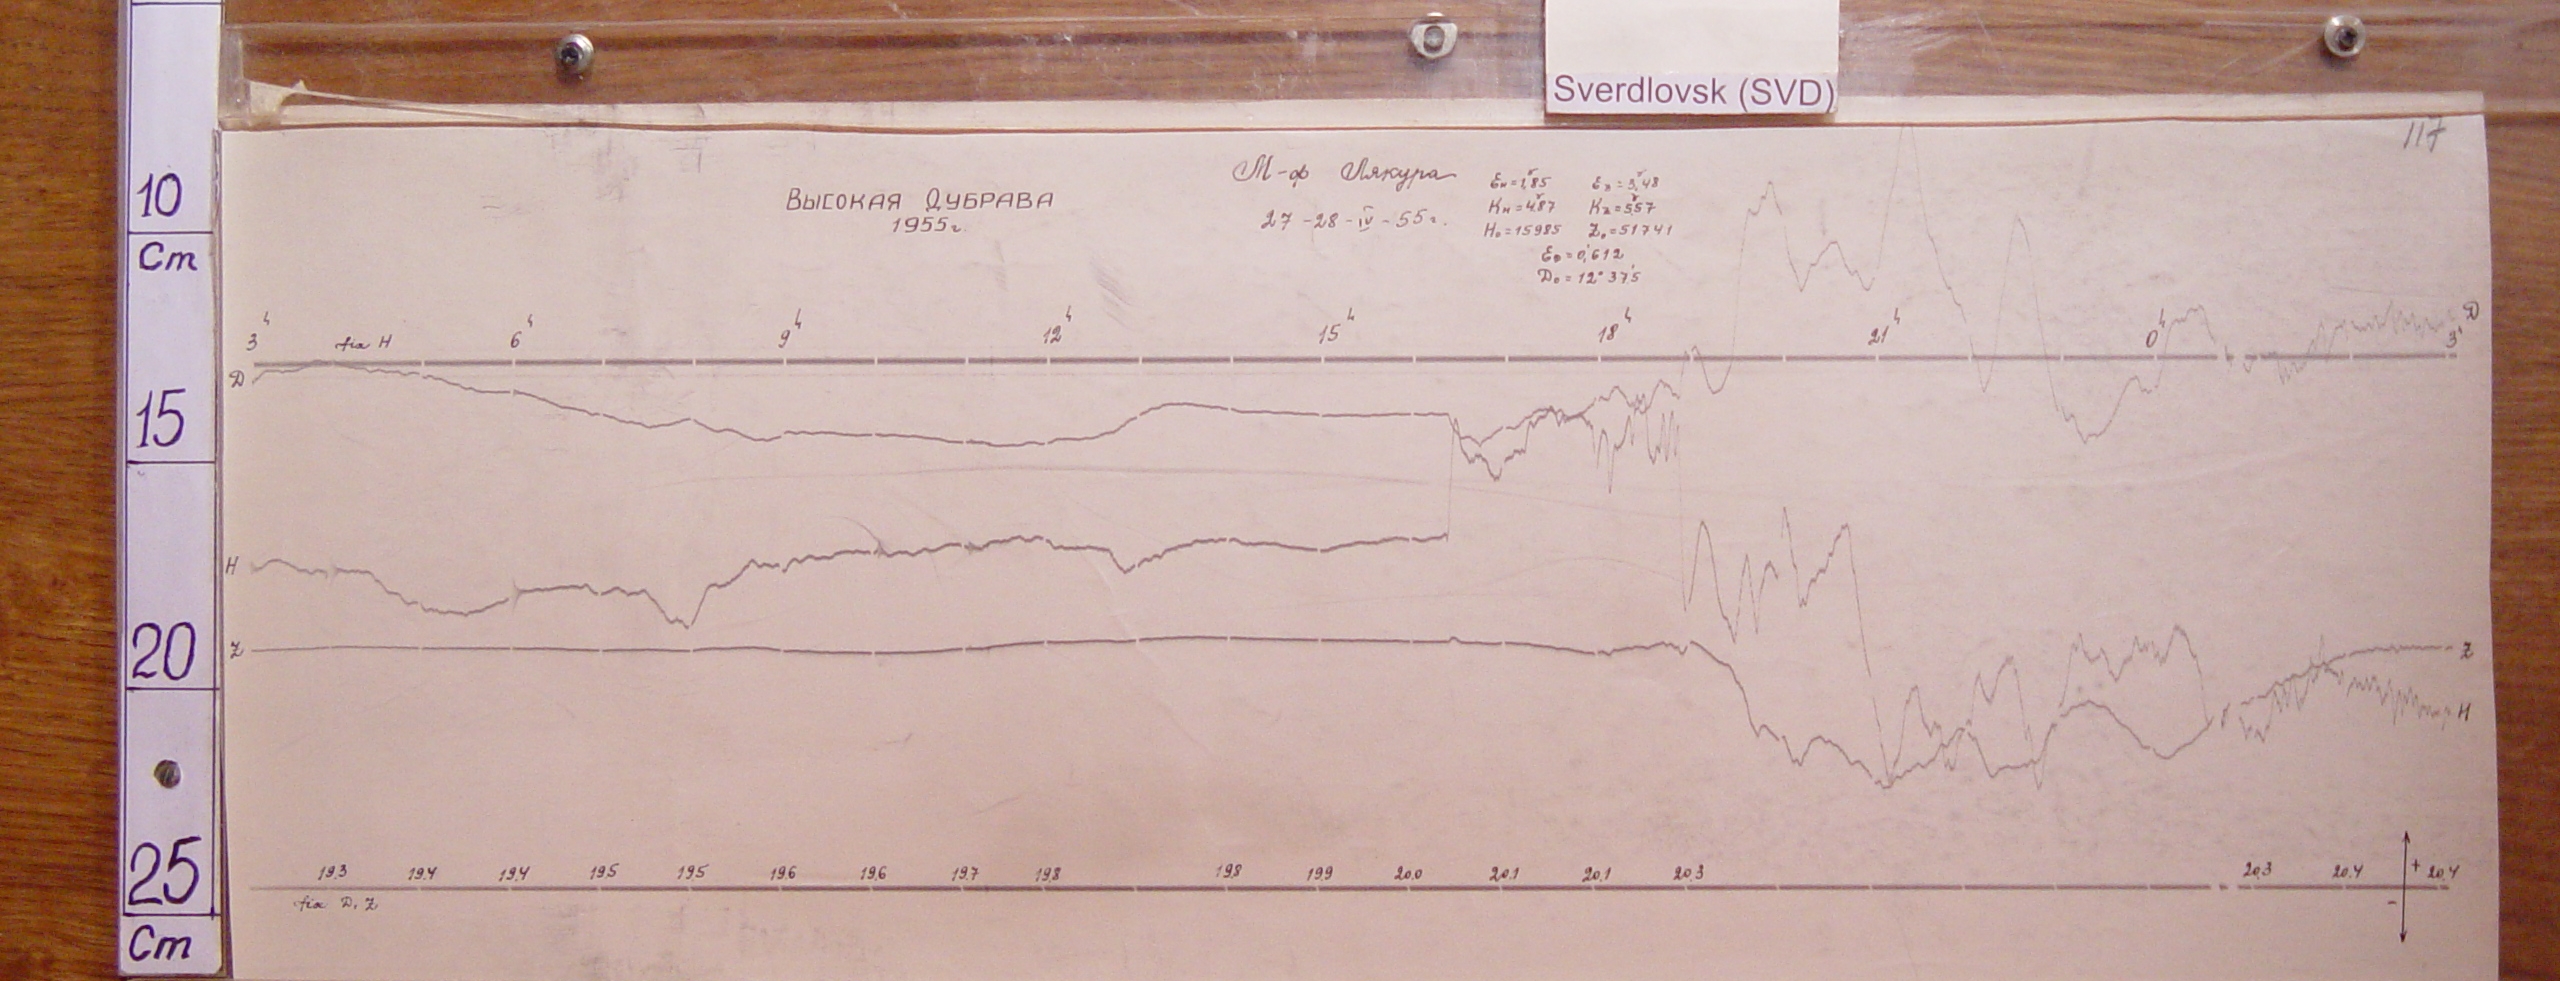 Sverdlovsk (SVD)
117
10
Cm
15
20
25
Cm
ВЫСОКАЯ ДУБРАВА
1955г.
М-ф Лякура
27-28-IV-55г.
εн=1,85 εz=3,48
Kн=4,87 Kz=5,57
H₀=15985 Z₀=51741
εD=0,612
D₀=12°37,5
3ч 6ч 9ч 12ч 15ч 18ч 21ч 0ч 3ч
fix H
D D
H
Z Z
H
19.3 19.4 19.4 19.5 19.5 19.6 19.6 19.7 19.8 19.8 19.9 20.0 20.1 20.1 20.3 20.3 20.4 + 20.4
fix D, Z
-